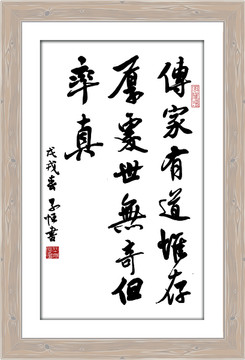 傳家有道惟存
厚處世無奇但
率真
戊戌春子恒書